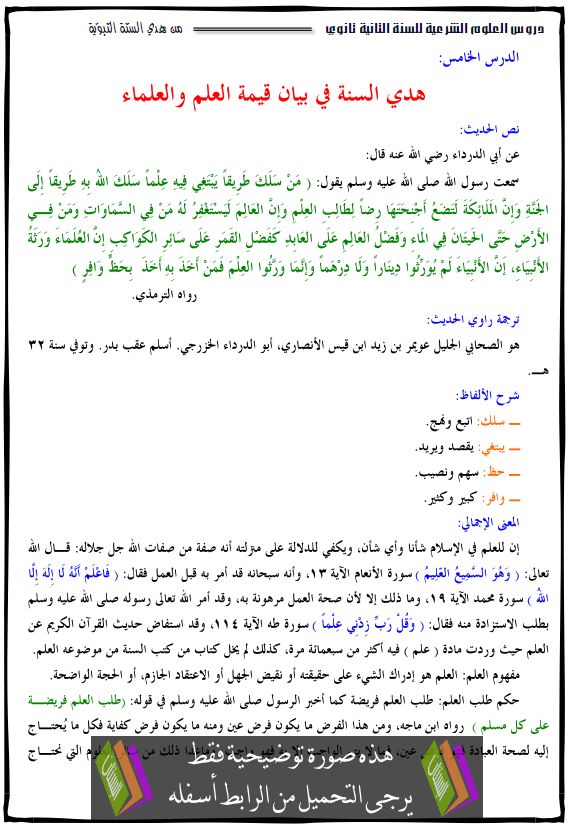 دروس العلوم الشرعية للسنة الثانية ثانوي من هدي السنة النبوية
الدرس الخامس:
هدي السنة في بيان قيمة العلم والعلماء
نص الحديث:
عن أبي الدرداء رضي الله عنه قال:
سمعت رسول الله صلى الله عليه وسلم يقول: ( مَنْ سَلَكَ طَرِيقاً يَبْتَغِي فِيهِ عِلْماً سَلَكَ اللهُ بِهِ طَرِيقاً إِلَى
الجَنَّةِ وَإِنَّ الْمَلَائِكَةَ لَتَضَعُ أَجْنِحَتَهَا رِضاً لِطَالِبِ العِلْمِ وَإِنَّ العَالِمَ لَيَسْتَغْفِرُ لَهُ مَنْ فِي السَّمَاوَاتِ وَمَنْ فِي
الأَرْضِ حَتَّى الحِيتَانَ فِي الْمَاءِ وَفَضْلُ العَالِمِ عَلَى العَابِدِ كَفَضْلِ القَمَرِ عَلَى سَائِرِ الكَوَاكِبِ إِنَّ العُلَمَاءَ وَرَثَةُ
الأَنْبِيَاءِ، إِنَّ الأَنْبِيَاءَ لَمْ يُوَرِّثُوا دِينَاراً وَلَا دِرْهَماً وَإِنَّمَا وَرَّثُوا العِلْمَ فَمَنْ أَخَذَ بِهِ أَخَذَ بِحَظٍّ وَافِرٍ )
رواه الترمذي.
ترجمة راوي الحديث:
هو الصحابي الجليل عويمر بن زيد ابن قيس الأنصاري، أبو الدرداء الخزرجي. أسلم عقب بدر. وتوفي سنة ٣٢
هـ.
شرح الألفاظ:
ــ سلك: اتبع ونهج.
ــ يبتغي: يقصد ويريد.
ــ حظ: سهم ونصيب.
ــ وافر: كبير وكثير.
المعنى الإجمالي:
إن للعلم في الإسلام شأنا وأي شأن، ويكفي للدلالة على منزلته أنه صفة من صفات الله جل جلاله: قال الله
تعالى: ( وَهُوَ السَّمِيعُ العَلِيمُ ) سورة الأنعام الآية ١٣، وأنه سبحانه قد أمر به قبل العمل فقال: ( فَاعْلَمْ أَنَّهُ لَا إِلَهَ إِلَّا
اللهُ ) سورة محمد الآية ١٩، وما ذلك إلا لأن صحة العمل مرهونة به، وقد أمر الله تعالى رسوله صلى الله عليه وسلم
بطلب الاستزادة منه فقال: ( وَقُلْ رَبِّ زِدْنِي عِلْماً ) سورة طه الآية ١١٤، وقد استفاض حديث القرآن الكريم عن
العلم حيث وردت مادة ( علم ) فيه أكثر من سبعمائة مرة، كذلك لم يخل كتاب من كتب السنة من موضوعه العلم.
مفهوم العلم: العلم هو إدراك الشيء على حقيقته أو نقيض الجهل أو الاعتقاد الجازم، أو الحجة الواضحة.
حكم طلب العلم: طلب العلم فريضة كما أخبر الرسول صلى الله عليه وسلم في قوله: (طلب العلم فريضة
على كل مسلم ) رواه ابن ماجه، ومن هذا الفرض ما يكون فرض عين ومنه ما يكون فرض كفاية فكل ما يُحتاج
إليه لصحة العبادة فهو عين، التي نحتاج
هذه صورة توضيحية فقط
يرجى التحميل من الرابط أسفله